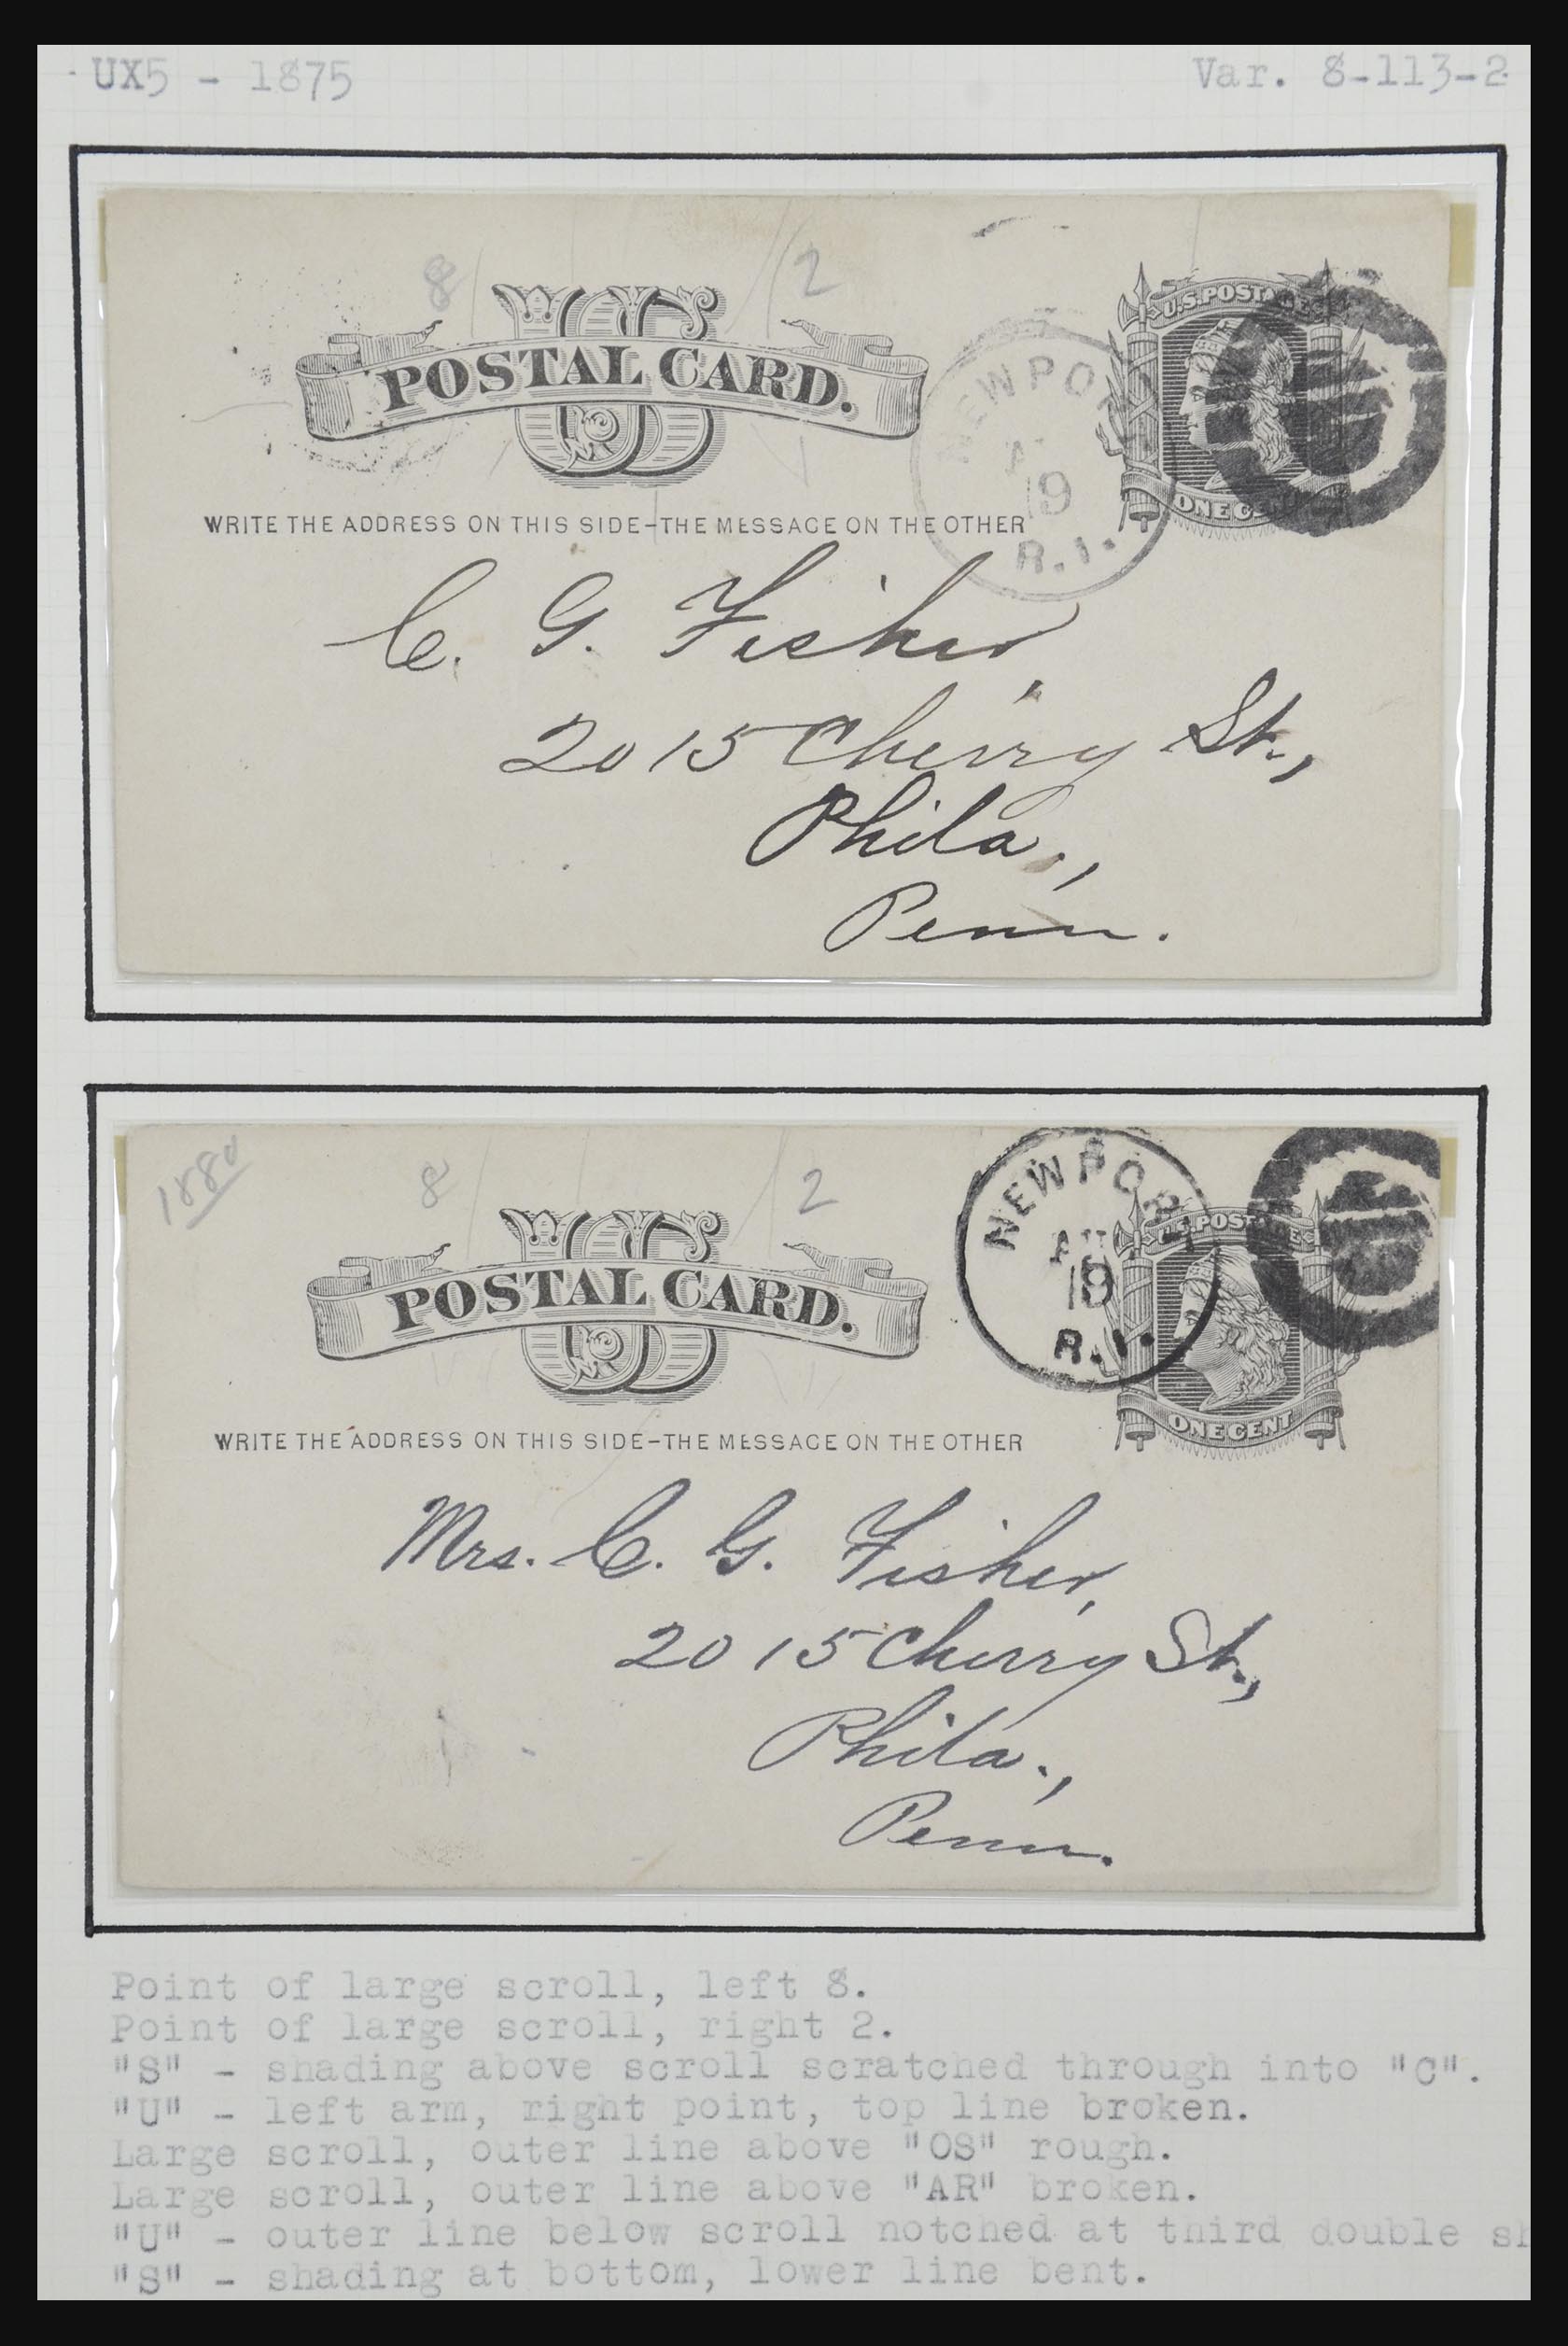 UX5 - 1875
Var. 8-113-2
8
2
US
POSTAL CARD.
U.S. POSTAGE
ONE CENT
NEWPORT
19
R.I.
WRITE THE ADDRESS ON THIS SIDE-THE MESSAGE ON THE OTHER
C. G. Fisher,
2015 Cherry St.,
Phila.,
Penn.
1880
8
2
US
POSTAL CARD.
NEWPORT
19
R.I.
U.S. POSTAGE
ONE CENT
WRITE THE ADDRESS ON THIS SIDE-THE MESSAGE ON THE OTHER
Mrs. C. G. Fisher,
2015 Cherry St.,
Phila.,
Penn.
Point of large scroll, left 8.
Point of large scroll, right 2.
"S" - shading above scroll scratched through into "C".
"U" - left arm, right point, top line broken.
Large scroll, outer line above "OS" rough.
Large scroll, outer line above "AR" broken.
"U" - outer line below scroll notched at third double sh
"S" - shading at bottom, lower line bent.